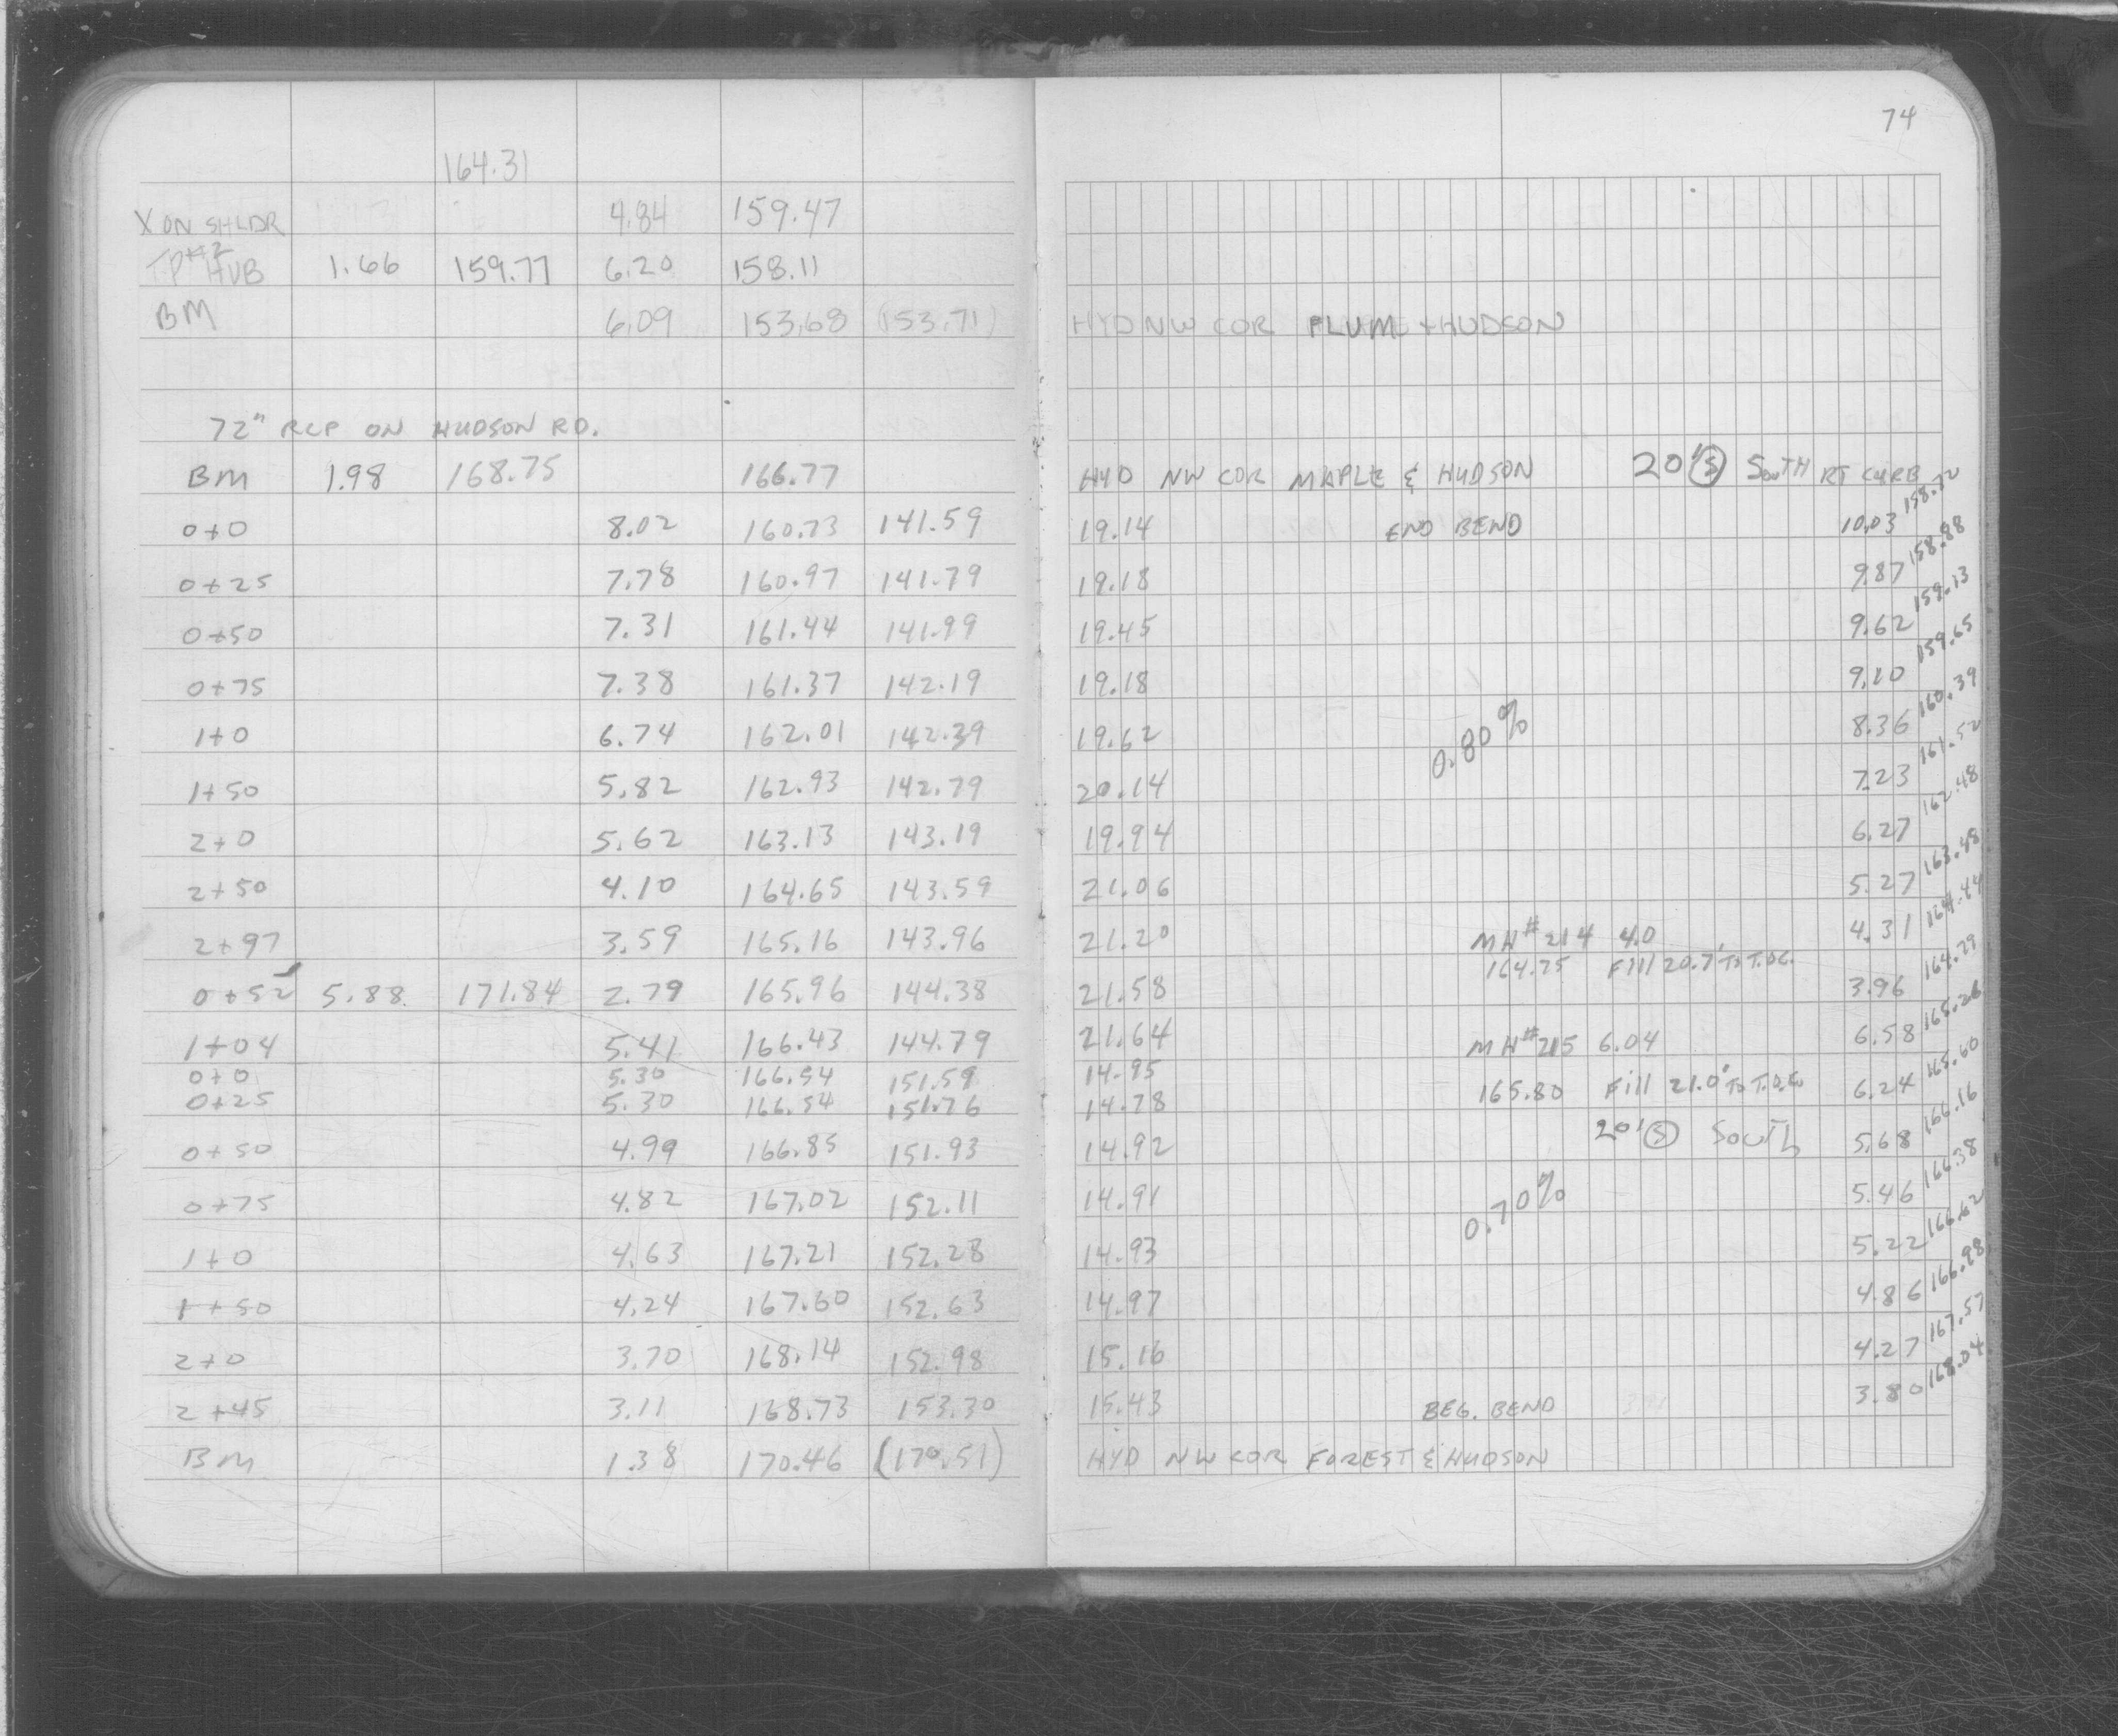 74
164.31
X ON SHLDR 4.84 159.47
TP#2 HUB 1.66 159.77 6.20 158.11
BM 6.09 153.68 (153.71) HYD NW COR PLUM + HUDSON
72" RCP ON HUDSON RD.
BM 1.98 168.75 166.77 HYD NW COR MAPLE & HUDSON 20' Ⓢ SOUTH RT CURB
0+0 8.02 160.73 141.59 19.14 END BEND 10.03 158.72
0+25 7.78 160.97 141.79 19.18 9.87 158.88
0+50 7.31 161.44 141.99 19.45 9.62 159.13
0+75 7.38 161.37 142.19 19.18 9.10 159.65
1+0 6.74 162.01 142.39 19.62 0.80% 8.36 160.39
1+50 5.82 162.93 142.79 20.14 7.23 161.52
2+0 5.62 163.13 143.19 19.94 6.27 162.48
2+50 4.10 164.65 143.59 21.06 5.27 163.48
2+97 3.59 165.16 143.96 21.20 MH#214 4.0 4.31 164.44
164.75 Fill 20.7' TO T.O.C.
0+52 5.88 171.84 2.79 165.96 144.38 21.58 3.96 164.79
1+04 5.41 166.43 144.79 21.64 MH#215 6.04 6.58 165.26
0+0 5.30 166.54 151.59 14.95 165.80 Fill 21.0' TO T.O.C. 6.24 165.60
0+25 5.30 166.54 151.76 14.78
0+50 4.99 166.85 151.93 14.92 20' Ⓢ South 5.68 166.16
0+75 4.82 167.02 152.11 14.91 0.70% 5.46 166.38
1+0 4.63 167.21 152.28 14.93 5.22 166.62
1+50 4.24 167.60 152.63 14.97 4.86 166.98
2+0 3.70 168.14 152.98 15.16 4.27 167.57
2+45 3.11 168.73 153.30 15.43 BEG. BEND 3.80 168.04
BM 1.38 170.46 (170.51) HYD NW COR FOREST & HUDSON